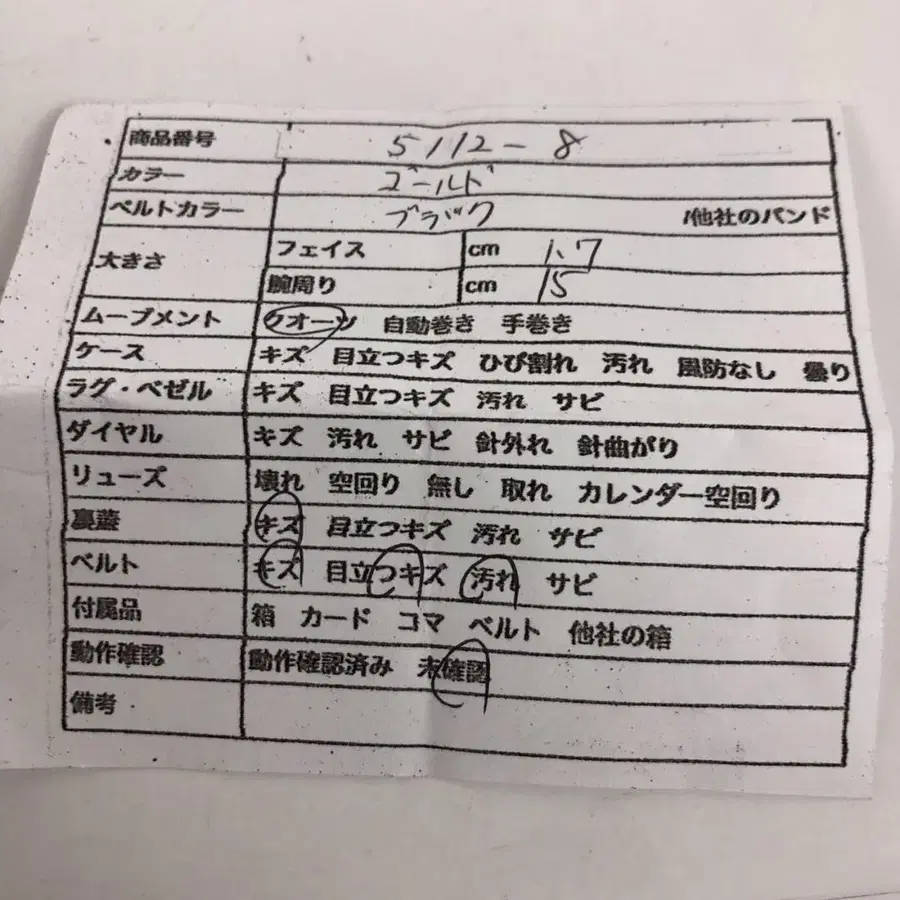 商品番号 5112-8
カラー ゴールド
ベルトカラー ブラック /他社のバンド
大きさ フェイス cm 1.7
腕周り cm 15
ムーブメント クオーツ 自動巻き 手巻き
ケース キズ 目立つキズ ひび割れ 汚れ 風防なし 曇り
ラグ・ベゼル キズ 目立つキズ 汚れ サビ
ダイヤル キズ 汚れ サビ 針外れ 針曲がり
リューズ 壊れ 空回り 無し 取れ カレンダー空回り
裏蓋 キズ 目立つキズ 汚れ サビ
ベルト キズ 目立つキズ 汚れ サビ
付属品 箱 カード コマ ベルト 他社の箱
動作確認 動作確認済み 未確認
備考